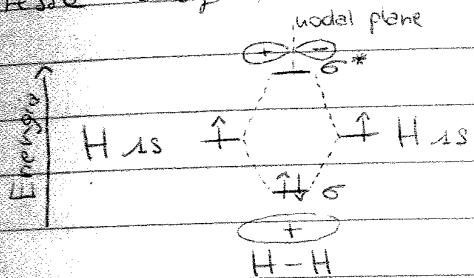 nodal plane
+ -
σ*
Energia
H 1s ↑ ↑ H 1s
↑↓ σ
+
H-H